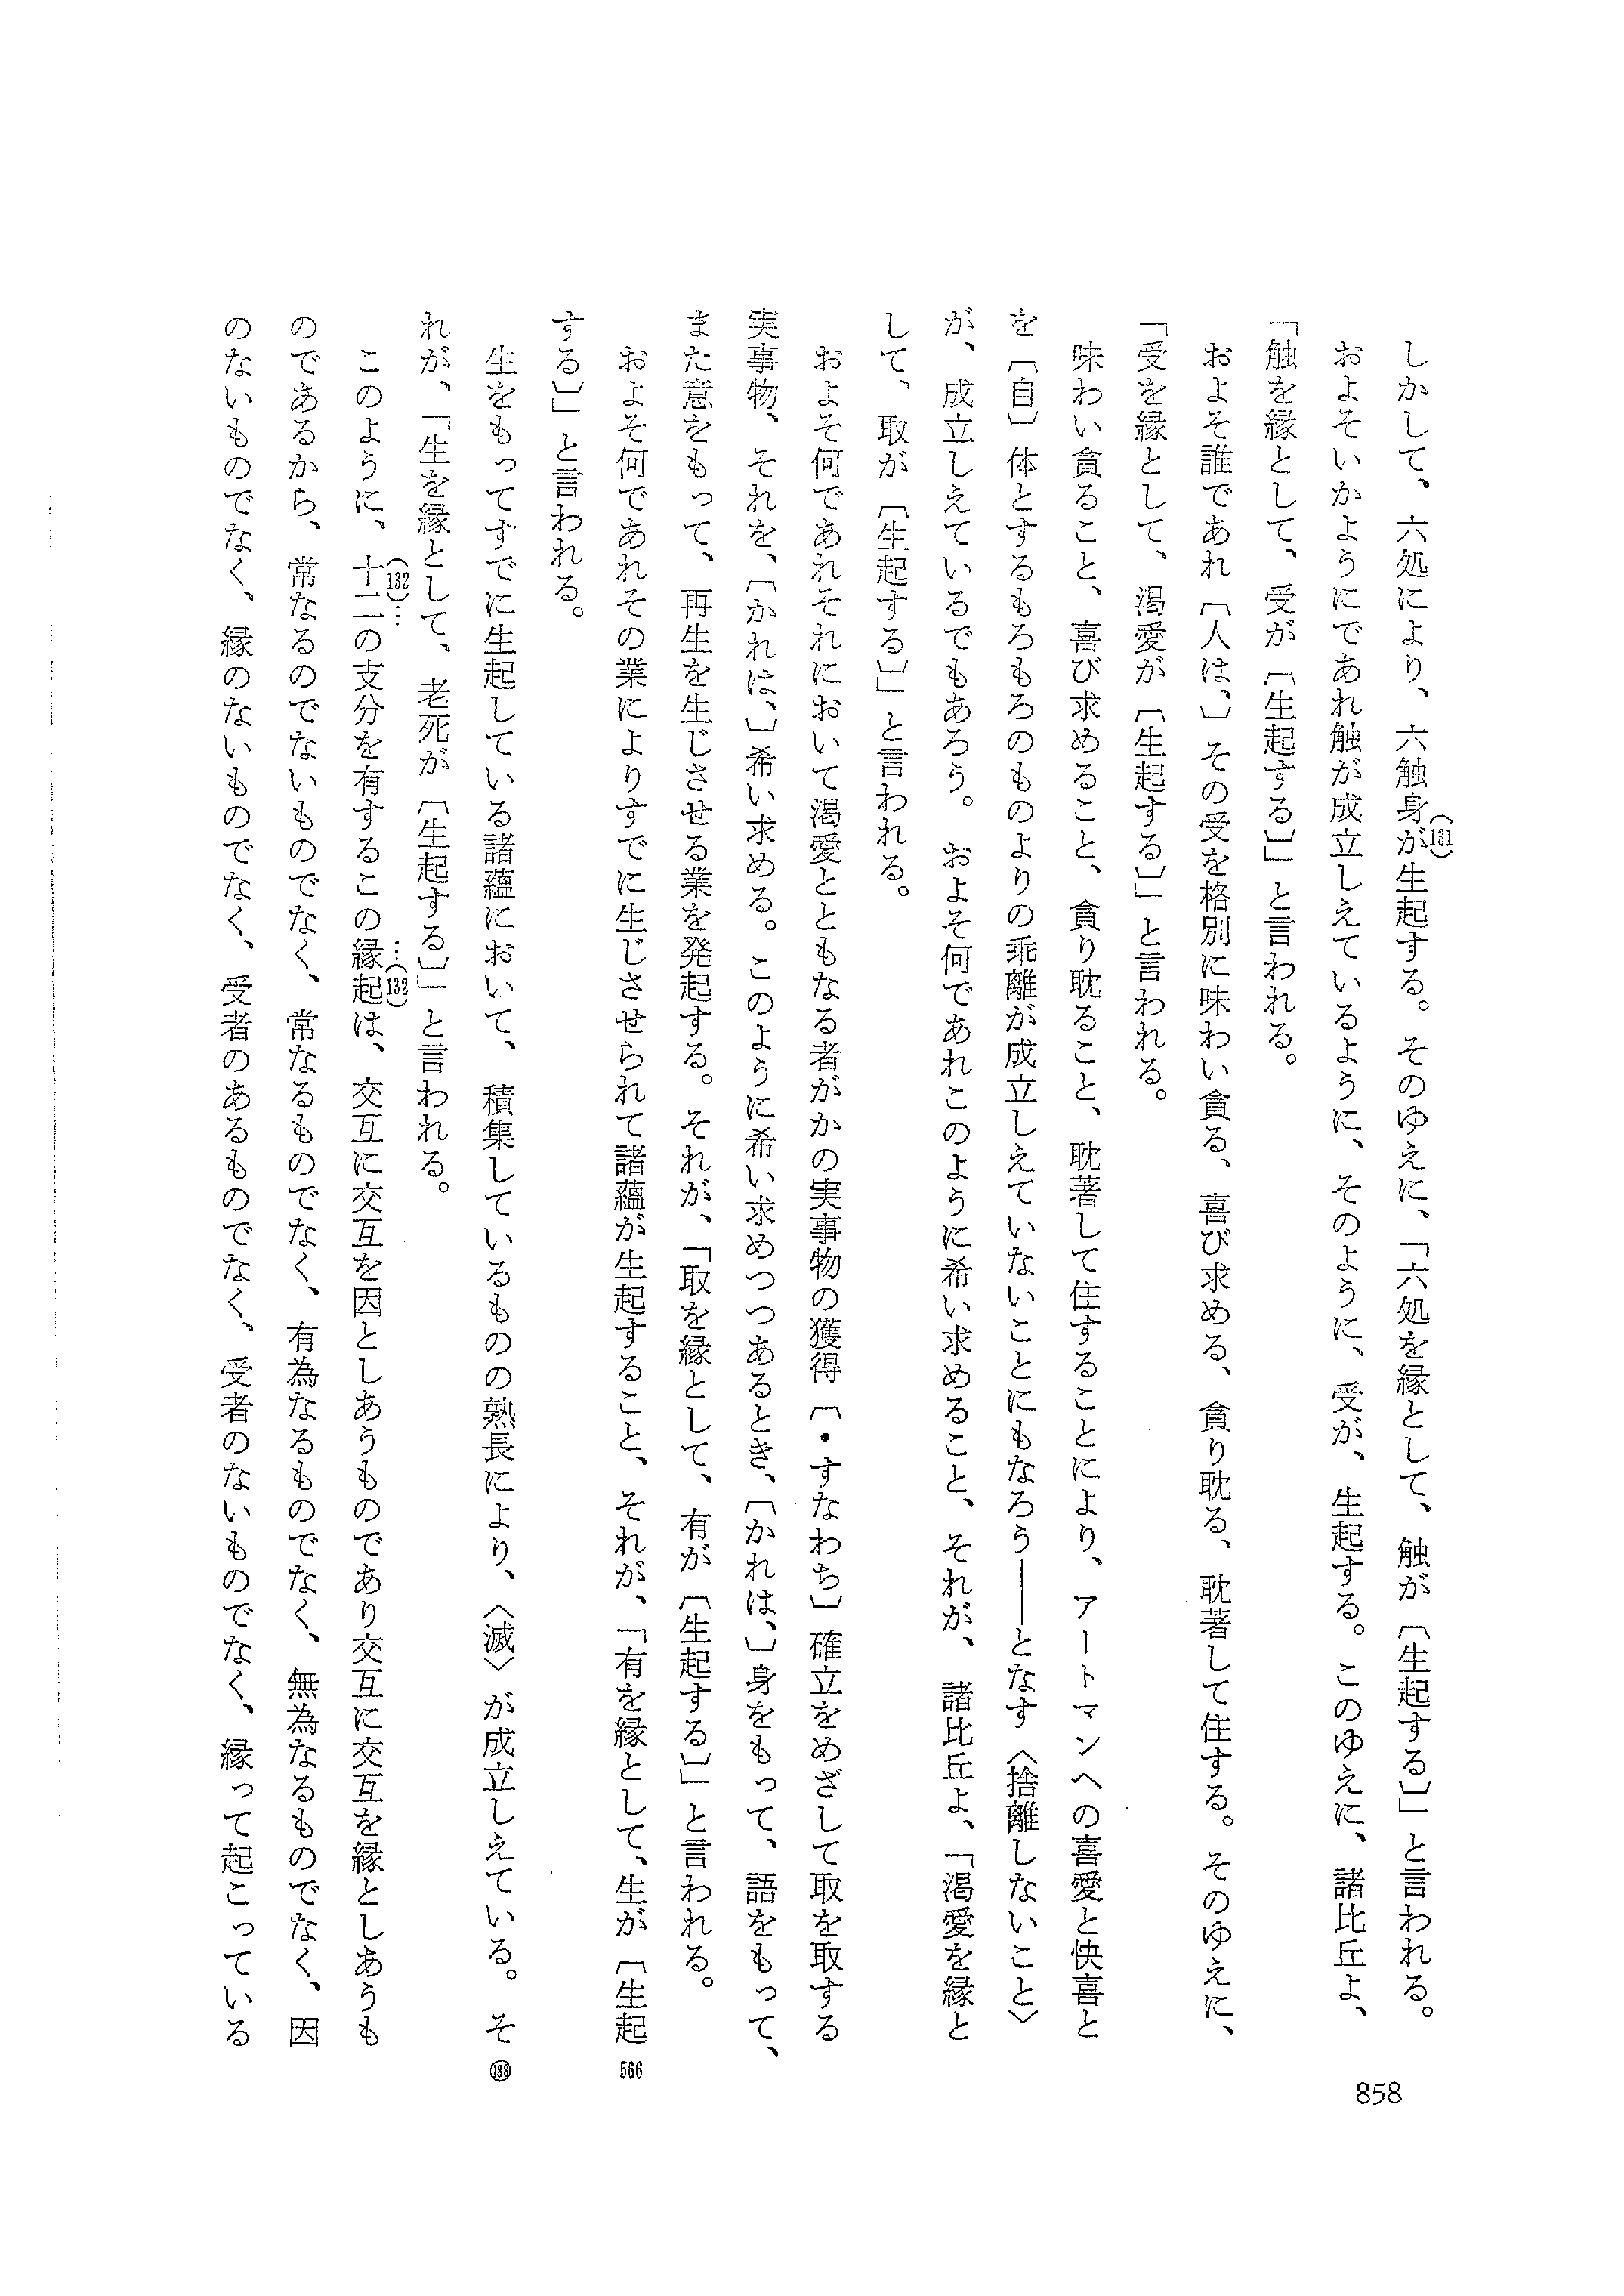 しかして、六処により、六触身が生起する。そのゆえに、「六処を縁として、触が〔生起する〕」と言われる。
(131)
およそいかようにであれ触が成立しえているように、そのように、受が、生起する。このゆえに、諸比丘よ、
「触を縁として、受が〔生起する〕」と言われる。
およそ誰であれ〔人は、〕その受を格別に味わい貪る、喜び求める、貪り耽る、耽著して住する。そのゆえに、
「受を縁として、渇愛が〔生起する〕」と言われる。
味わい貪ること、喜び求めること、貪り耽ること、耽著して住することにより、アートマンへの喜愛と快喜と
を〔自〕体とするもろもろのものよりの乖離が成立しえていないことにもなろう――となす〈捨離しないこと〉
が、成立しえているでもあろう。およそ何であれこのように希い求めること、それが、諸比丘よ、「渇愛を縁と
して、取が〔生起する〕」と言われる。
およそ何であれそれにおいて渇愛とともなる者がかの実事物の獲得〔・すなわち〕確立をめざして取を取する
実事物、それを、〔かれは、〕希い求める。このように希い求めつつあるとき、〔かれは、〕身をもって、語をもって、
また意をもって、再生を生じさせる業を発起する。それが、「取を縁として、有が〔生起する〕」と言われる。
およそ何であれその業によりすでに生じさせられて諸蘊が生起すること、それが、「有を縁として、生が〔生起
566
する〕」と言われる。
生をもってすでに生起している諸蘊において、積集しているものの熟長により、〈滅〉が成立しえている。そ
138
れが、「生を縁として、老死が〔生起する〕」と言われる。
このように、十二の支分を有するこの縁起は、交互に交互を因としあうものであり交互に交互を縁としあうも
(132)… …(132)
のであるから、常なるのでないものでなく、常なるものでなく、有為なるものでなく、無為なるものでなく、因
のないものでなく、縁のないものでなく、受者のあるものでなく、受者のないものでなく、縁って起こっている
858